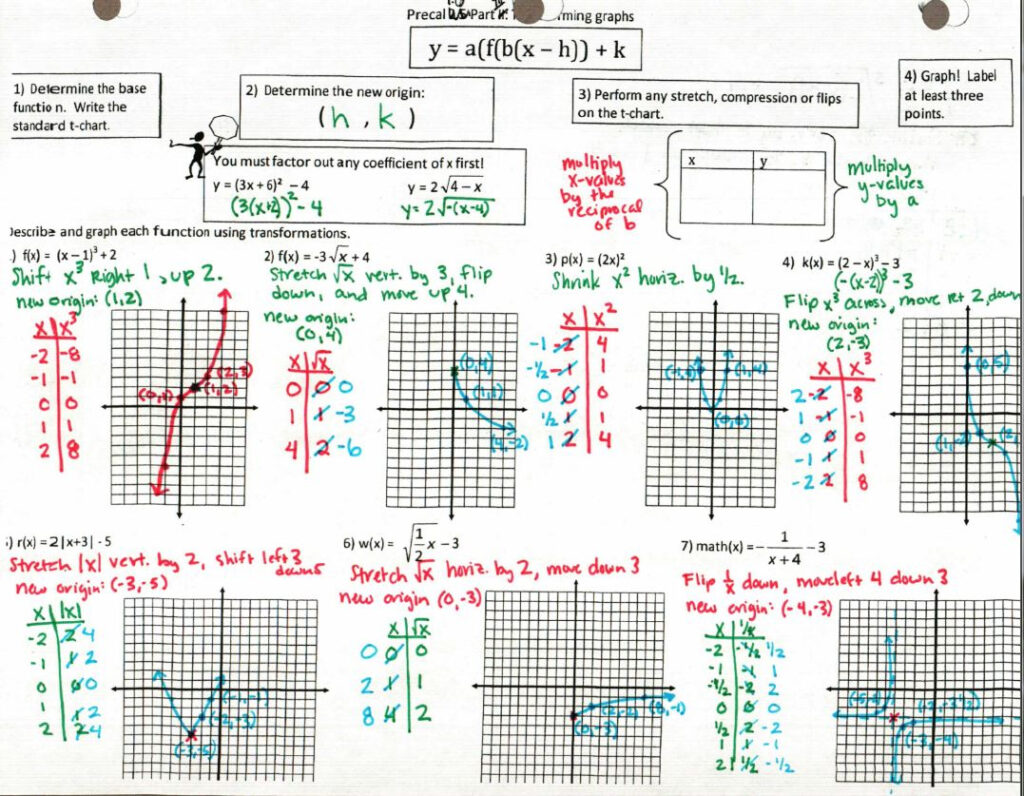 Precal
Part
rming graphs
y = a(f(b(x – h)) + k
1) Determine the base
function. Write the
standard t-chart.
2) Determine the new origin:
(h , k)
3) Perform any stretch, compression or flips
on the t-chart.
4) Graph! Label
at least three
points.
You must factor out any coefficient of x first!
y = (3x + 6)² – 4
(3(x+2))² - 4
y = 2√4 – x
y = 2√-(x-4)
multiply
x-values
by the
reciprocal
of b
x y
multiply
y-values
by a
Describe and graph each function using transformations.
) f(x) = (x – 1)³ + 2
Shift x³ Right 1, up 2.
new origin: (1,2)
x x³
-2 -8
-1 -1
0 0
1 1
2 8
(0,1)
(2,3)
(1,2)
2) f(x) = -3√x + 4
Stretch √x vert. by 3, flip
down, and move up 4.
new origin:
(0,4)
x √x
0 0 0
1 1 -3
4 2 -6
(0,4)
(1,1)
(4,-2)
3) p(x) = (2x)²
Shrink x² horiz. by ½.
x x²
-1 -2 4
-½ -1 1
0 0 0
½ 1 1
1 2 4
(1,4)
(0,0)
4) k(x) = (2 – x)³ – 3
(-(x-2))³ - 3
Flip x³ across, move rt 2, down
new origin:
(2,-3)
x x³
2 -2 -8
1 -1 -1
0 0 0
-1 1 1
-2 2 8
(0,5)
(1,-2)
(2,
) r(x) = 2|x+3| - 5
Stretch |x| vert. by 2, shift left 3
down 5
new origin: (-3,-5)
x |x|
-2 2 4
-1 1 2
0 0 0
1 1 2
2 2 4
(-1,-1)
(-2,-3)
(-3,-5)
6) w(x) = √1/2 x – 3
Stretch √x horiz. by 2, move down 3
new origin (0,-3)
x √x
0 0 0
2 1 1
8 4 2
(0,-3)
(2,-2)
(8,-1)
7) math(x) = – 1/x + 4 – 3
Flip 1/x down, move left 4 down 3
new origin: (-4,-3)
x 1/x
-2 -½ ½
-1 -1 1
-½ -2 2
0 0 0
½ 2 -2
1 1 -1
2 ½ -½
(-3,-4)